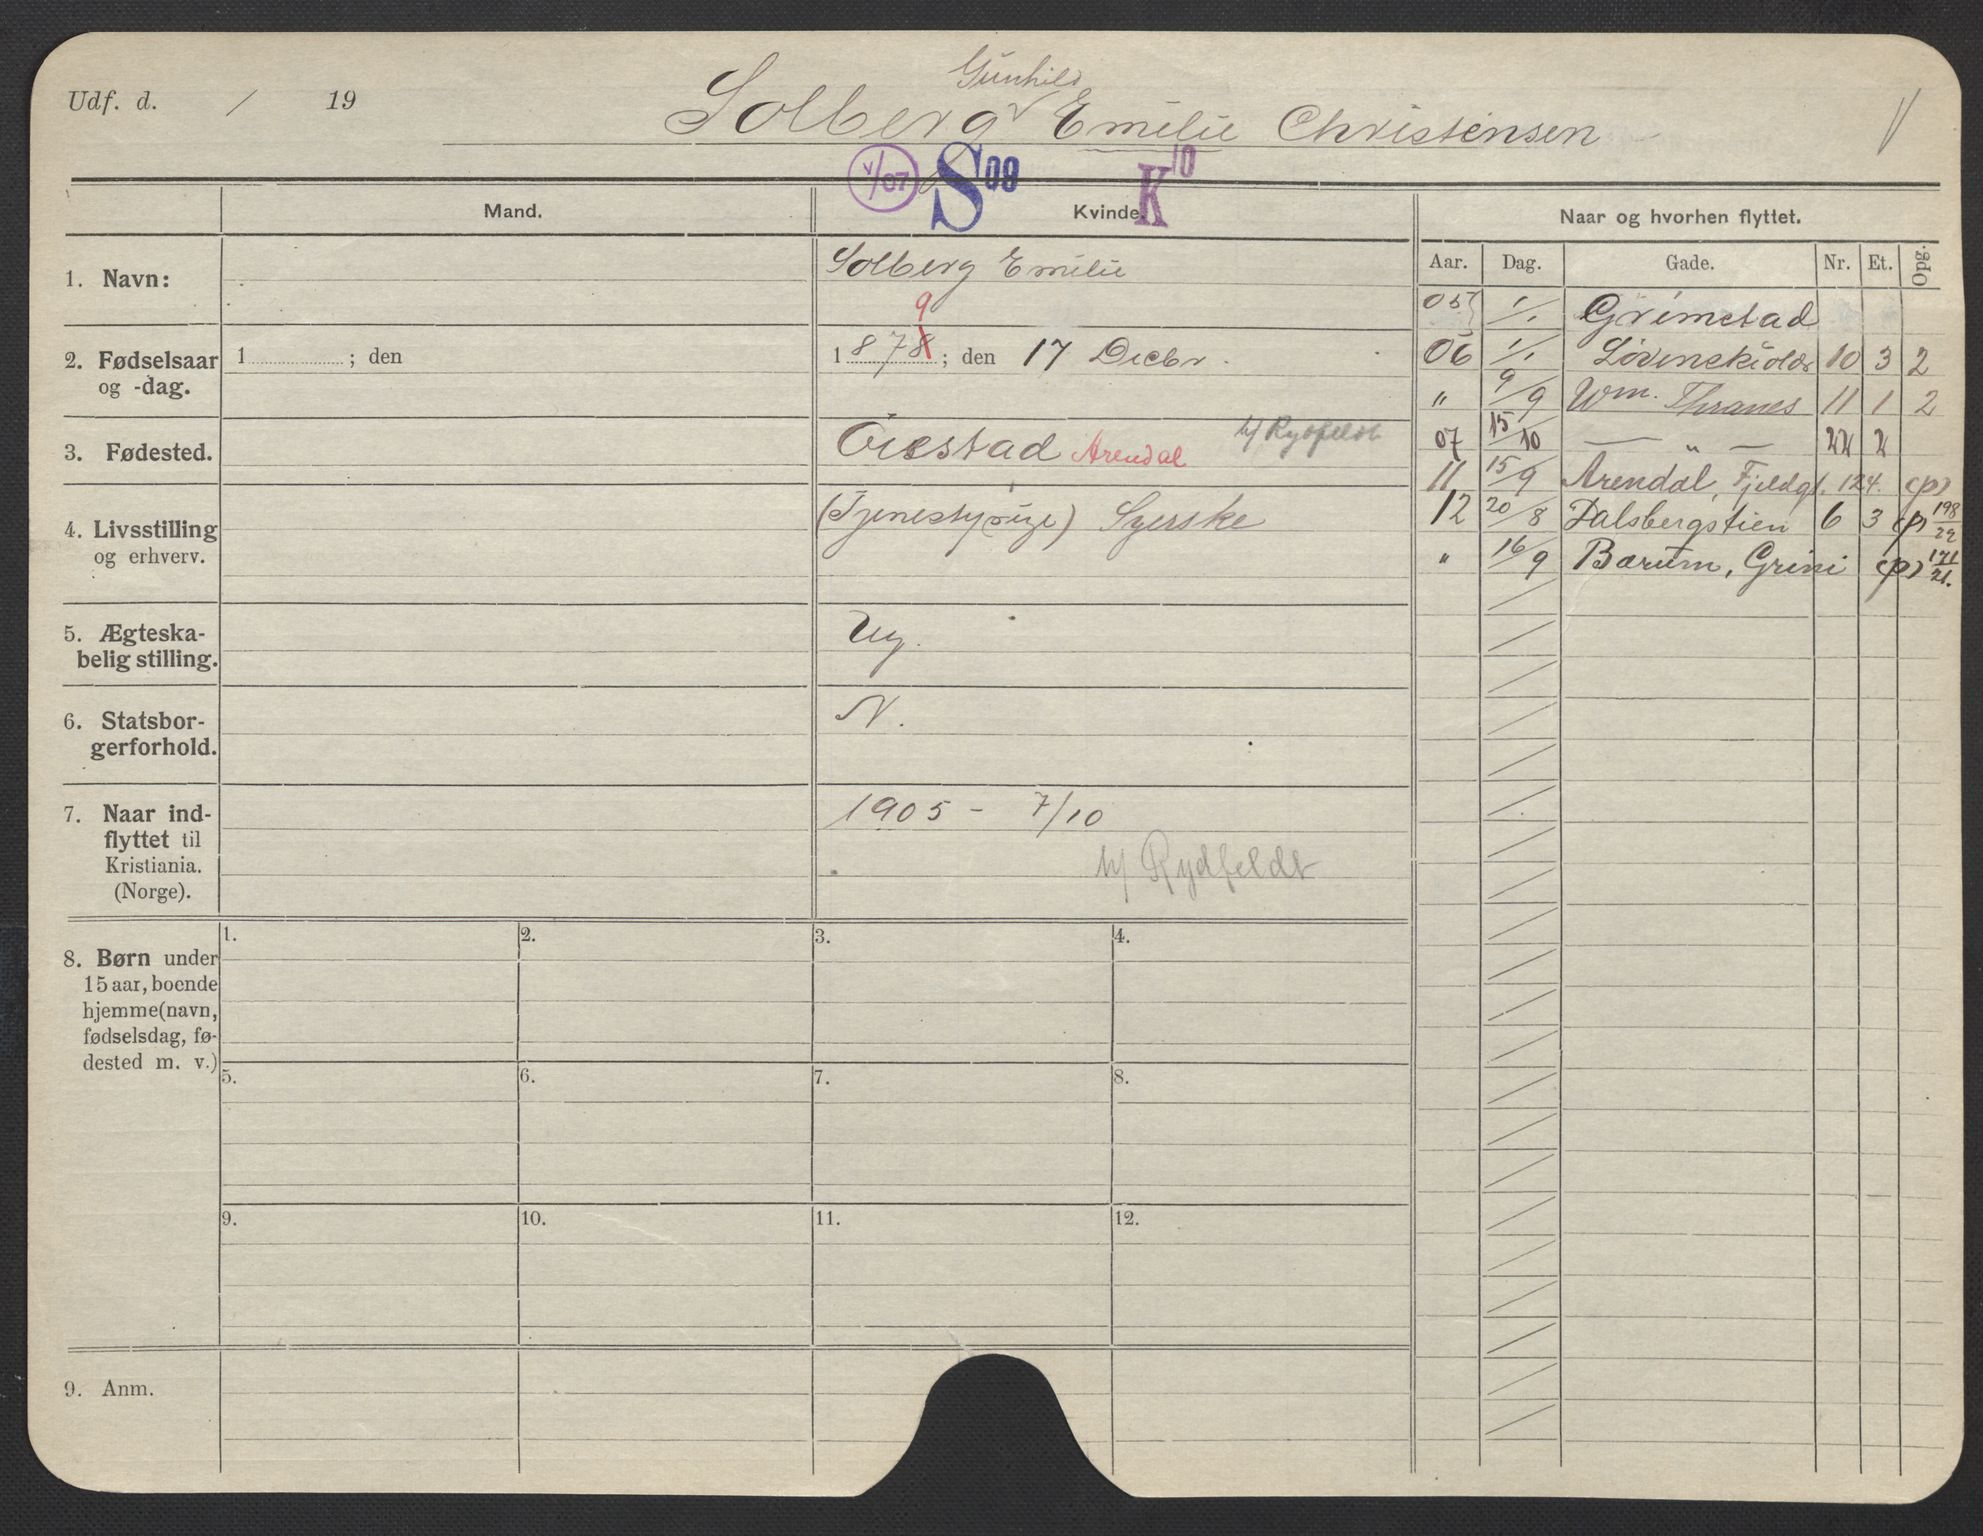 Udf. d. / 19
Gunhild
Solberg Emilie Christensen
V/07 S 09 K 10
Mand. Kvinde. Naar og hvorhen flyttet.
Aar. Dag. Gade. Nr. Et. Opg.
1. Navn: Solberg Emilie
2. Fødselsaar og -dag.
1 ; den
9
1878 ; den 17 Decbr.
3. Fødested. Øiestad Arendal h/ Rydfeldt
4. Livsstilling og erhverv. (Tjenestepige) Syerske
5. Ægteska-
belig stilling. Ug.
6. Statsbor-
gerforhold. N.
7. Naar ind-
flyttet til
Kristiania.
(Norge).
1905 - 7/10
h/ Rydfeldt
05 1/1 Grimstad
06 1/1 Løvenskiolds 10 3 2
" 9/9 Wm. Thranes 11 1 2
07 15/10 — " — 22 2
11 15/9 Arendal, Fjeldgt. 124. (p)
12 20/8 Dalsbergstien 6 3 (p) 198/22
" 16/9 Bærum, Grini (p) 171/21.
8. Børn under
15 aar, boende
hjemme (navn,
fødselsdag, fø-
dested m. v.)
1. 2. 3. 4.
5. 6. 7. 8.
9. 10. 11. 12.
9. Anm.